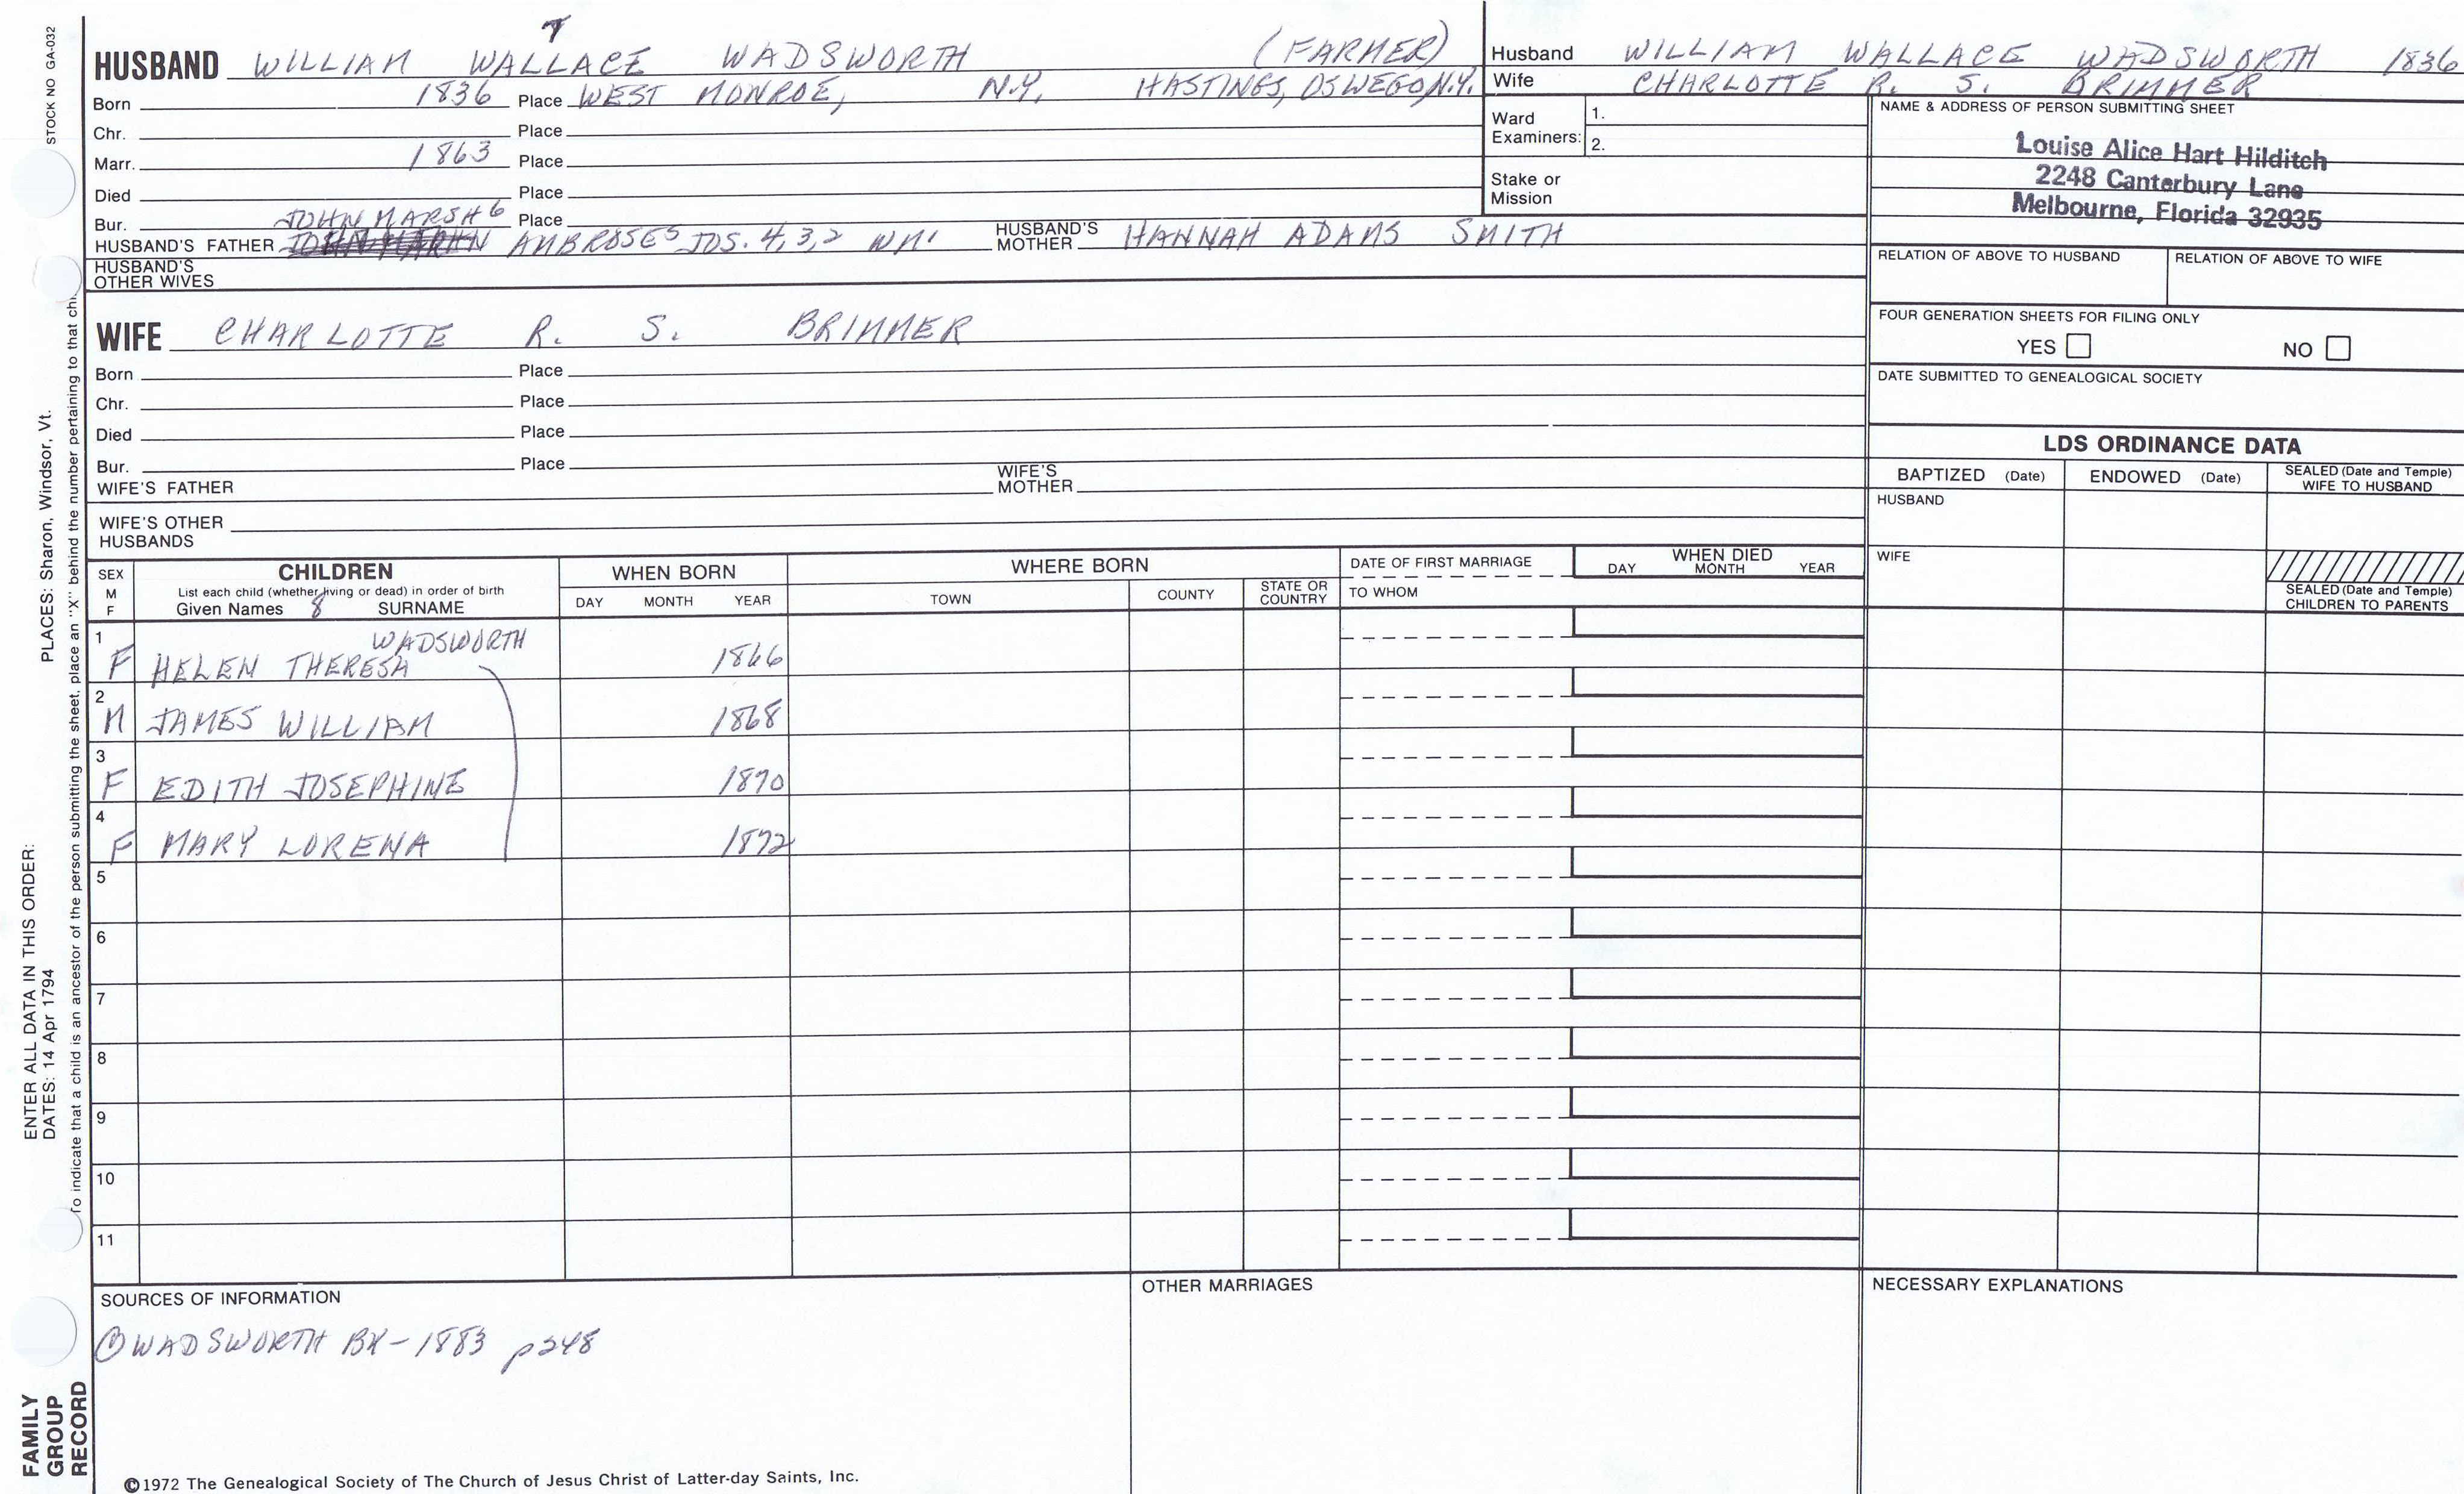 STOCK NO GA-032
PLACES: Sharon, Windsor, Vt.
ENTER ALL DATA IN THIS ORDER:
DATES: 14 Apr 1794
To indicate that a child is an ancestor of the person submitting the sheet, place an "X" behind the number pertaining to that chi
FAMILY
GROUP
RECORD
7
HUSBAND WILLIAM WALLACE WADSWORTH (FARMER)
Born 1836 Place WEST MONROE, N.Y. HASTINGS, OSWEGO, N.Y.
Chr. Place
Marr. 1863 Place
Died Place
Bur. Place
JOHN MARSH 6
HUSBAND'S FATHER AMBROSE 5 JOS. 4, 3, 2 WM 1 HUSBAND'S MOTHER HANNAH ADAMS SMITH
HUSBAND'S
OTHER WIVES
WIFE CHARLOTTE R. S. BRIMMER
Born Place
Chr. Place
Died Place
Bur. Place
WIFE'S FATHER WIFE'S MOTHER
WIFE'S OTHER
HUSBANDS
Husband WILLIAM WALLACE WADSWORTH 1836
Wife CHARLOTTE R. S. BRIMMER
Ward
Examiners:
1.
2.
Stake or
Mission
NAME & ADDRESS OF PERSON SUBMITTING SHEET
Louise Alice Hart Hilditch
2248 Canterbury Lane
Melbourne, Florida 32935
RELATION OF ABOVE TO HUSBAND RELATION OF ABOVE TO WIFE
FOUR GENERATION SHEETS FOR FILING ONLY
YES NO
DATE SUBMITTED TO GENEALOGICAL SOCIETY
LDS ORDINANCE DATA
BAPTIZED (Date) ENDOWED (Date) SEALED (Date and Temple)
WIFE TO HUSBAND
HUSBAND
WIFE
SEALED (Date and Temple)
CHILDREN TO PARENTS
SEX
M
F
CHILDREN
List each child (whether living or dead) in order of birth
Given Names 8 SURNAME
WHEN BORN
DAY MONTH YEAR
WHERE BORN
TOWN COUNTY STATE OR COUNTRY
DATE OF FIRST MARRIAGE
TO WHOM
WHEN DIED
DAY MONTH YEAR
1 WADSWORTH
F HELEN THERESA 1866
2
M JAMES WILLIAM 1868
3
F EDITH JOSEPHINE 1870
4
F MARY LORENA 1872
5
6
7
8
9
10
11
SOURCES OF INFORMATION
① WADSWORTH BK - 1883 p248
OTHER MARRIAGES
NECESSARY EXPLANATIONS
©1972 The Genealogical Society of The Church of Jesus Christ of Latter-day Saints, Inc.